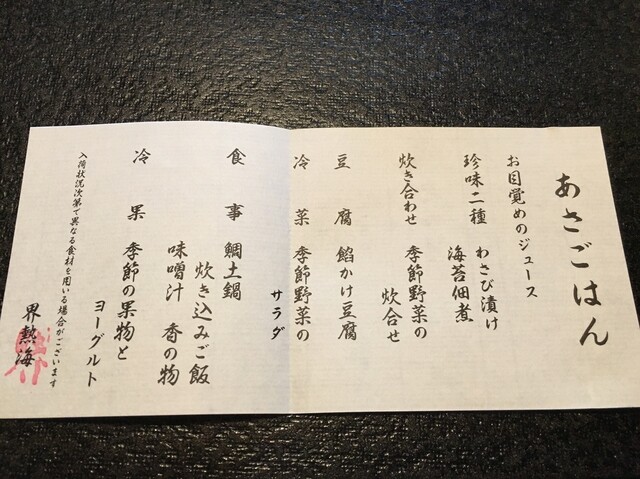 あさごはん
お目覚めのジュース
珍味二種 わさび漬け
海苔佃煮
炊き合わせ 季節野菜の
炊合せ
豆腐 餡かけ豆腐
冷菜 季節野菜の
サラダ
食事 鯛土鍋
炊き込みご飯
味噌汁 香の物
冷果 季節の果物と
ヨーグルト
入荷状況次第で異なる食材を用いる場合がございます
界熱海